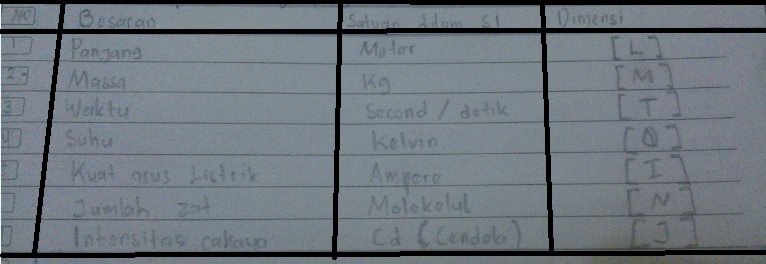 NO Besaran Satuan dalam SI Dimensi
1 Panjang Motor [L]
2 Massa Kg [M]
3 Waktu Second / detik [T]
4 Suhu Kelvin [θ]
Kuat arus Listrik Ampere [I]
Jumlah zat Molekolul [N]
Intensitas cahaya Cd (Candela) [J]